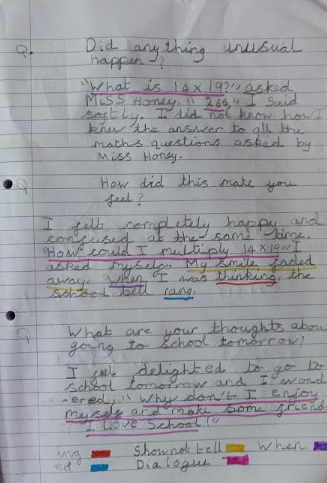 Q. Did anything unusual
happen?
"What is 14 x 19?" asked
Miss Honey. "266," I said
softly. I did not know how I
knew the answer to all the
maths questions asked by
Miss Honey.
Q How did this make you
feel?
I felt completely happy and
confused at the same time.
"How could I multiply 14 x 19" I
asked myself. My smile faded
away. When I was thinking, the
school bell rang.
Q What are your thoughts abou
going to school tomorrow?
I felt delighted to go to
school tomorrow and I wond
-ered, "Why don't I enjoy
myself and make some friend
I love School!"
ing Show not tell When
ed Dialogue